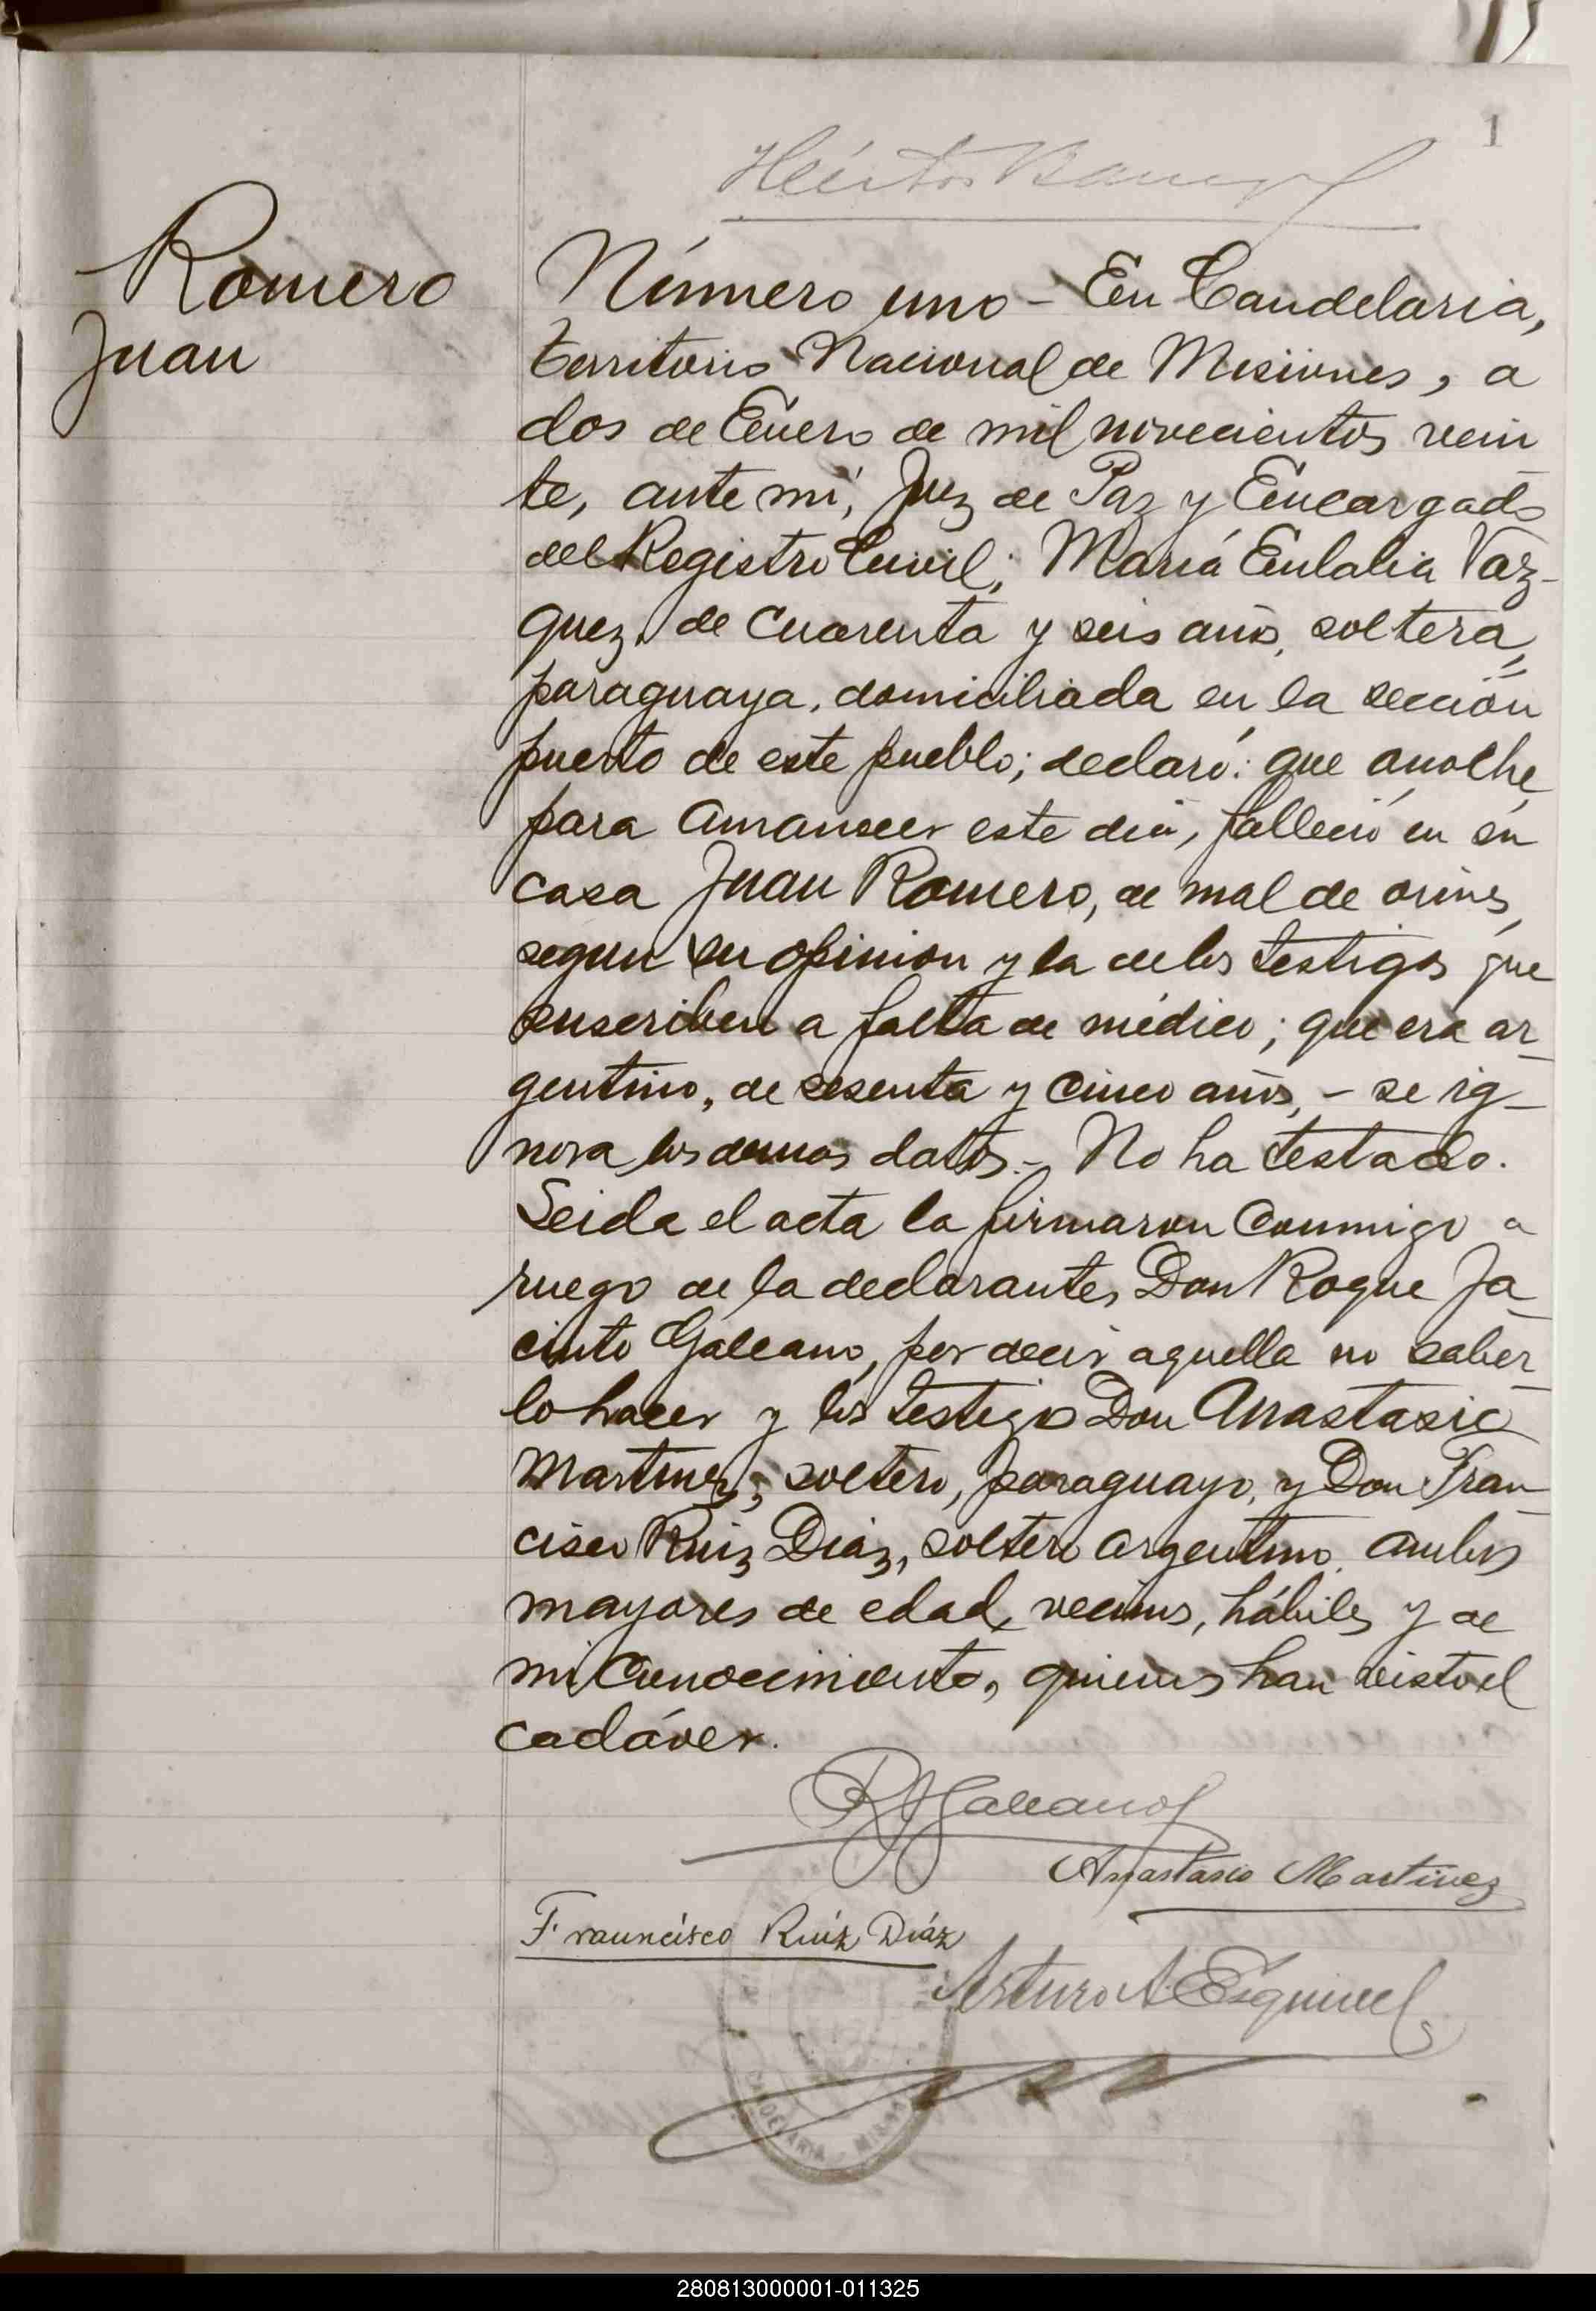 1
Romero
Juan
Número uno - En Candelaria,
territorio Nacional de Misiones, a
dos de Enero de mil novecientos vein
te, ante mi, Juez de Paz y Encargado
del Registro Civil; María Eulalia Vaz-
quez, de cuarenta y seis años, soltera,
paraguaya, domiciliada en la sección
puerto de este pueblo; declaró: que anoche,
para amanecer este dia, falleció en su
casa Juan Romero, de mal de orines,
segun su opinion y la de los testigos que
suscriben a falta de médico; que era ar-
gentino, de sesenta y cinco años, - se ig-
nora los demas datos.- No ha testado.
Leida el acta la firmaron conmigo a
ruego de la declarante, Don Roque Ja-
cinto Galeano, por decir aquella no saber-
lo hacer y los testigos Don Anastasio
Martinez, soltero, paraguayo, y Don Fran-
cisco Ruiz Diaz, soltero argentino, ambos
mayores de edad, vecinos, hábiles y de
mi conocimiento, quienes han visto el
cadáver.
RJGaleano
Anastasio Martinez
Frauncisco Ruíz Díáz
Arturo A. Esquivel
CANDELARIA - MISIO
280813000001-011325